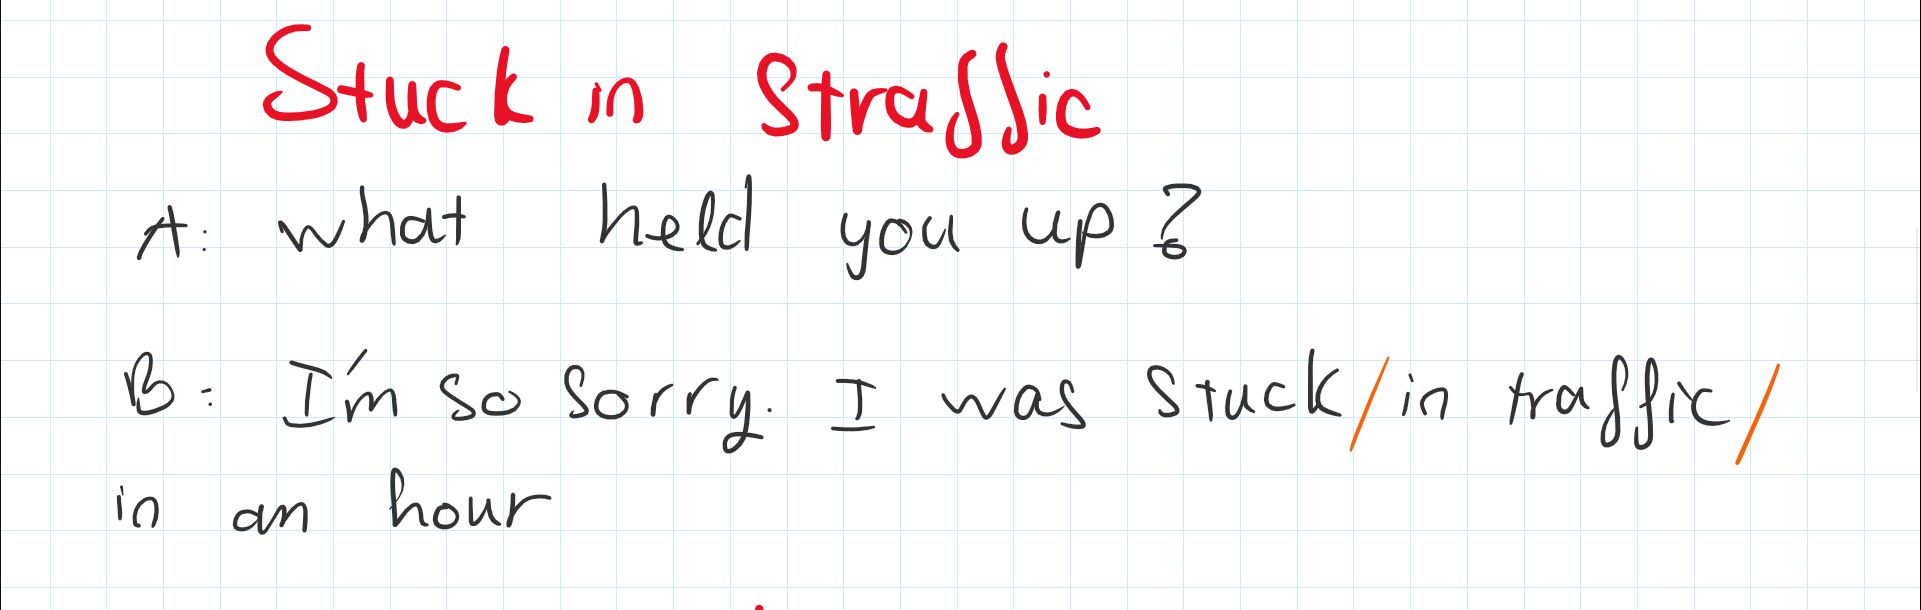 Stuck in straffic
A: what held you up?
B: I'm so sorry. I was stuck/in traffic/
in an hour